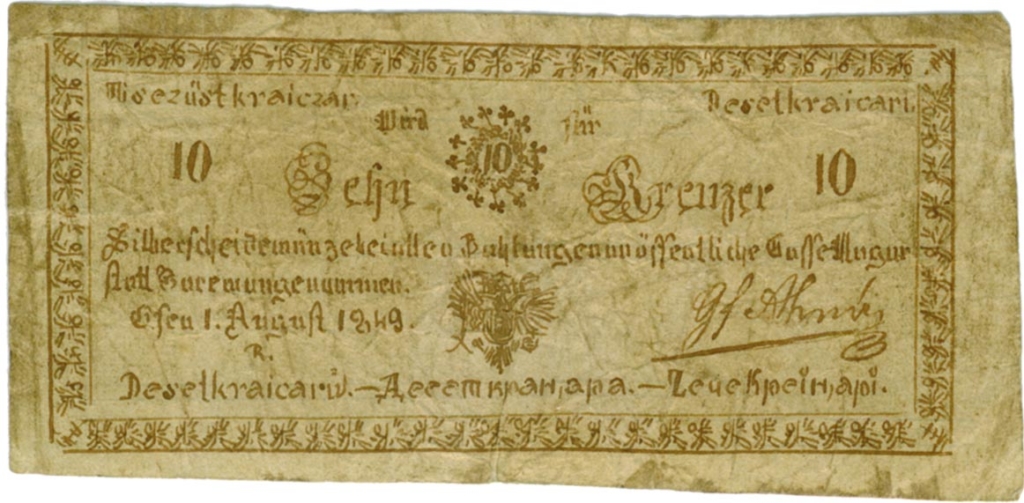 Tisezüstkraiczár. Desetkraicari.
Wird für
10 10 10
Zehn Kreuzer
Silberscheidemünze bei allen Zahlungen an öffentliche Casse Ungar
statt Baremangenummen.
Ofen 1. August 1849.
R.
Desetkraicarü. — Десеткраицара. — Zeчeкpeiцapi.